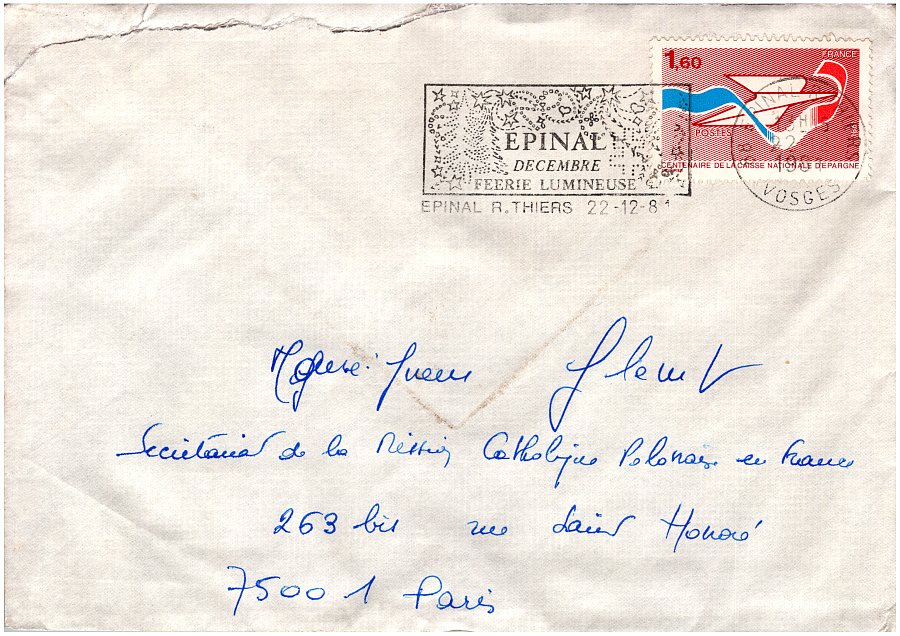 1,60
FRANCE
POSTES
CENTENAIRE DE LA CAISSE NATIONALE D'EPARGNE
EPINAL
DECEMBRE
FEERIE LUMINEUSE
EPINAL R. THIERS 22-12-81
VOSGES
Secrétariat de la Mission Catholique Polonaise en France
263 bis rue Saint Honoré
75001 Paris